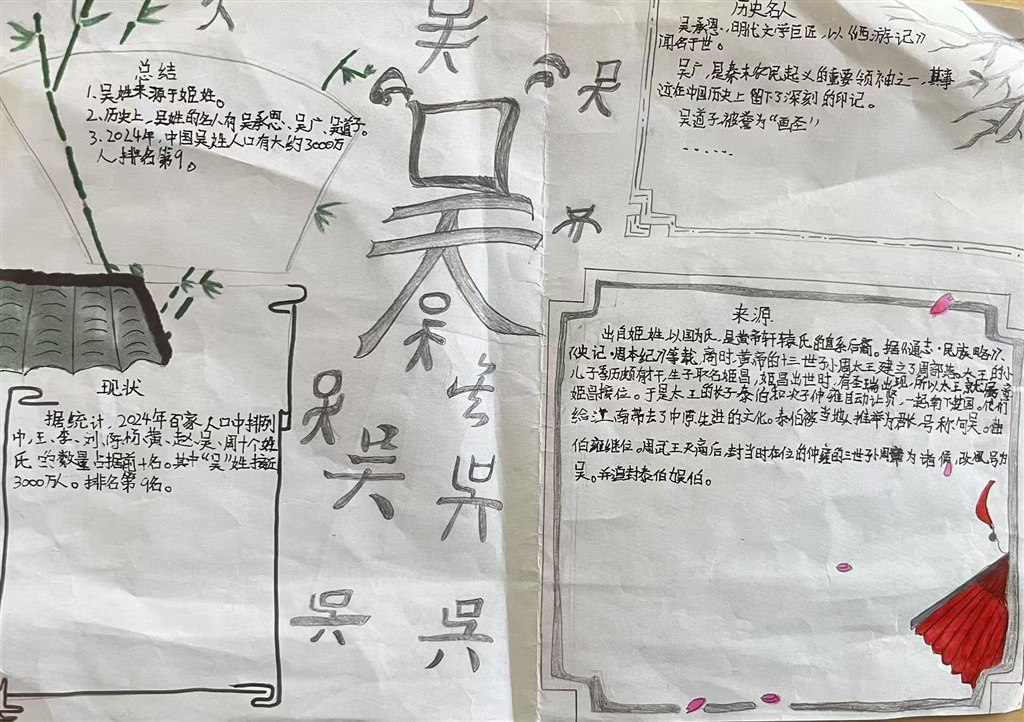 吴
“吴
吴
吴
总结
1.吴姓来源于姬姓。
2.历史上,吴姓的名人有吴承恩、吴广、吴道子。
3.2024年,中国吴姓人口有大约3000万
人,排名第9。
现状
据统计,2024年百家人口中排列
中,王、李、刘、陈、杨、黄、赵、吴、周十个姓
氏的数量占据前十名。其中“吴”姓接近
3000万人。排名第9名。
吴
吴
吴
吴
吴
历史名人
吴承恩,明代文学巨匠,以《西游记》
闻名于世。
吴广,是秦末农民起义的重要领袖之一,其事
迹在中国历史上留下了深刻的印记。
吴道子被誉为“画圣”
......
来源
出自姬姓,以国为氏,是黄帝轩辕氏的直系后裔。据《通志·民族略》、
《史记·周本纪》等载,商时黄帝的十二世子小周太王建立了周部落。太王的小
儿子季历颇有才干,生子取名姬昌,姬昌出世时,有圣瑞出现,所以太王就属意
姬昌接位。于是太王的长子泰伯和次子仲雍自动让贤,一起南下建国。他们
给江南带去了中原先进的文化。泰伯被当地人推举为君长,号称句吴。
伯雍继位。周武王灭商后,封当时在位的仲雍的三世子周章为诸侯,改国号为
吴。并追封泰伯